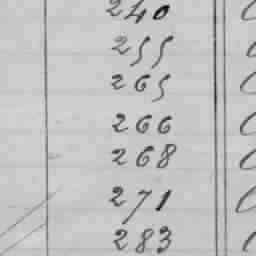 240
255
265
266
268
271
283